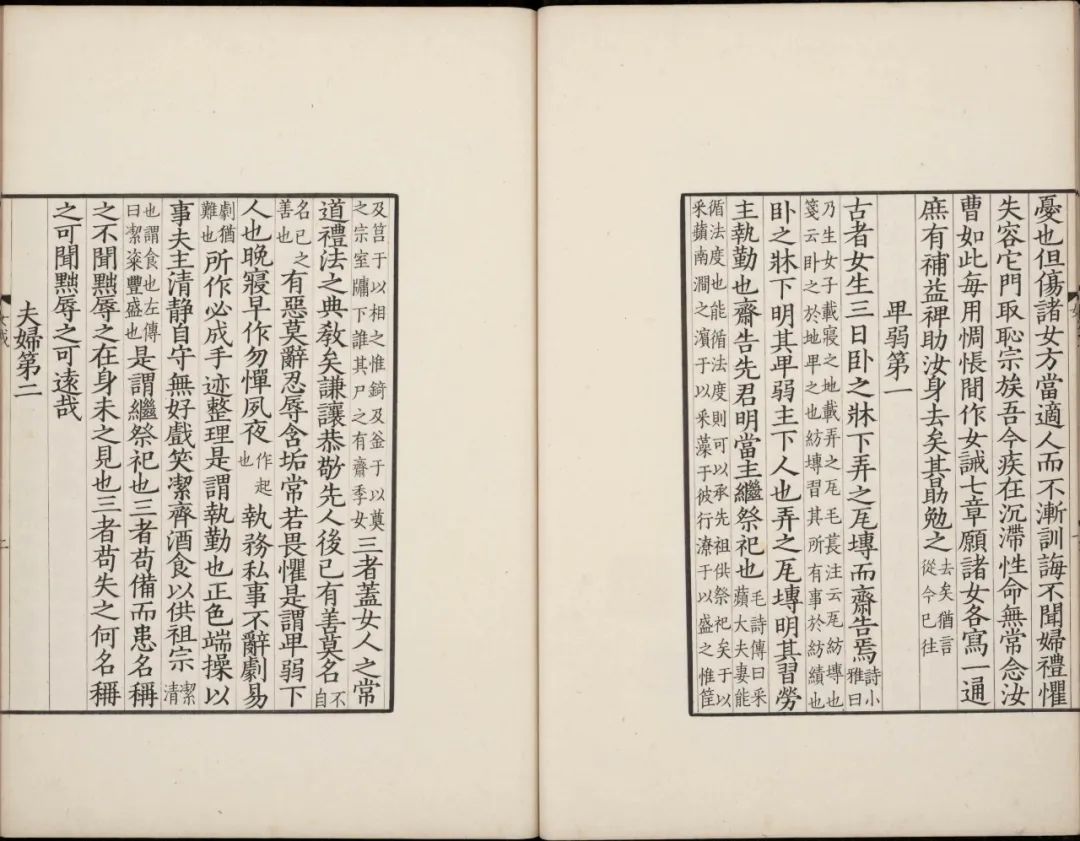 憂也但傷諸女方當適人而不漸訓誨不聞婦禮懼
失容它門取恥宗族吾今疾在沉滯性命無常念汝
曹如此每用惆悵間作女誡七章願諸女各寫一通
庶有補益裨助汝身去矣其勗勉之去矣猶言從今已往
卑弱第一
古者女生三日卧之牀下弄之瓦塼而齋告焉詩小雅曰
乃生女子載寢之地載弄之瓦毛萇注云瓦紡塼也
箋云卧之於地卑之也紡塼習其所有事於紡績也
卧之牀下明其卑弱主下人也弄之瓦塼明其習勞
主執勤也齋告先君明當主繼祭祀也毛詩傳曰采蘋大夫妻能
循法度也能循法度則可以承先祖供祭祀矣于以
采蘋南澗之濱于以采藻于彼行潦于以盛之惟筐
及筥于以相之惟錡及釜于以奠之宗室牖下誰其尸之有齋季女三者蓋女人之常
道禮法之典敎矣謙讓恭敬先人後已有善莫名不自
名已之善也有惡莫辭忍辱含垢常若畏懼是謂卑弱下
人也晚寢早作勿憚夙夜作起也執務私事不辭劇易
劇猶難也所作必成手迹整理是謂執勤也正色端操以
事夫主清静自守無好戲笑潔齊酒食以供祖宗潔清
也謂食也左傳曰潔粢豐盛也是謂繼祭祀也三者苟備而患名稱
之不聞黜辱之在身未之見也三者苟失之何名稱
之可聞黜辱之可遠哉
夫婦第二